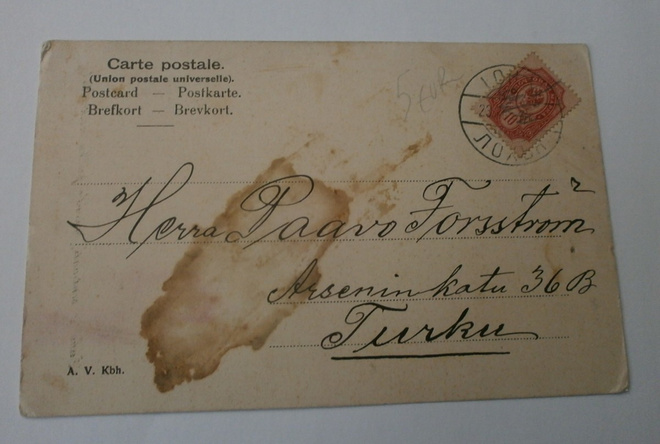 Carte postale.
(Union postale universelle).
Postcard — Postkarte.
Brefkort — Brevkort.
5 EUR
10
Herra Paavo Forsström
Arseninkatu 36 B
Turku
A. V. Kbh.